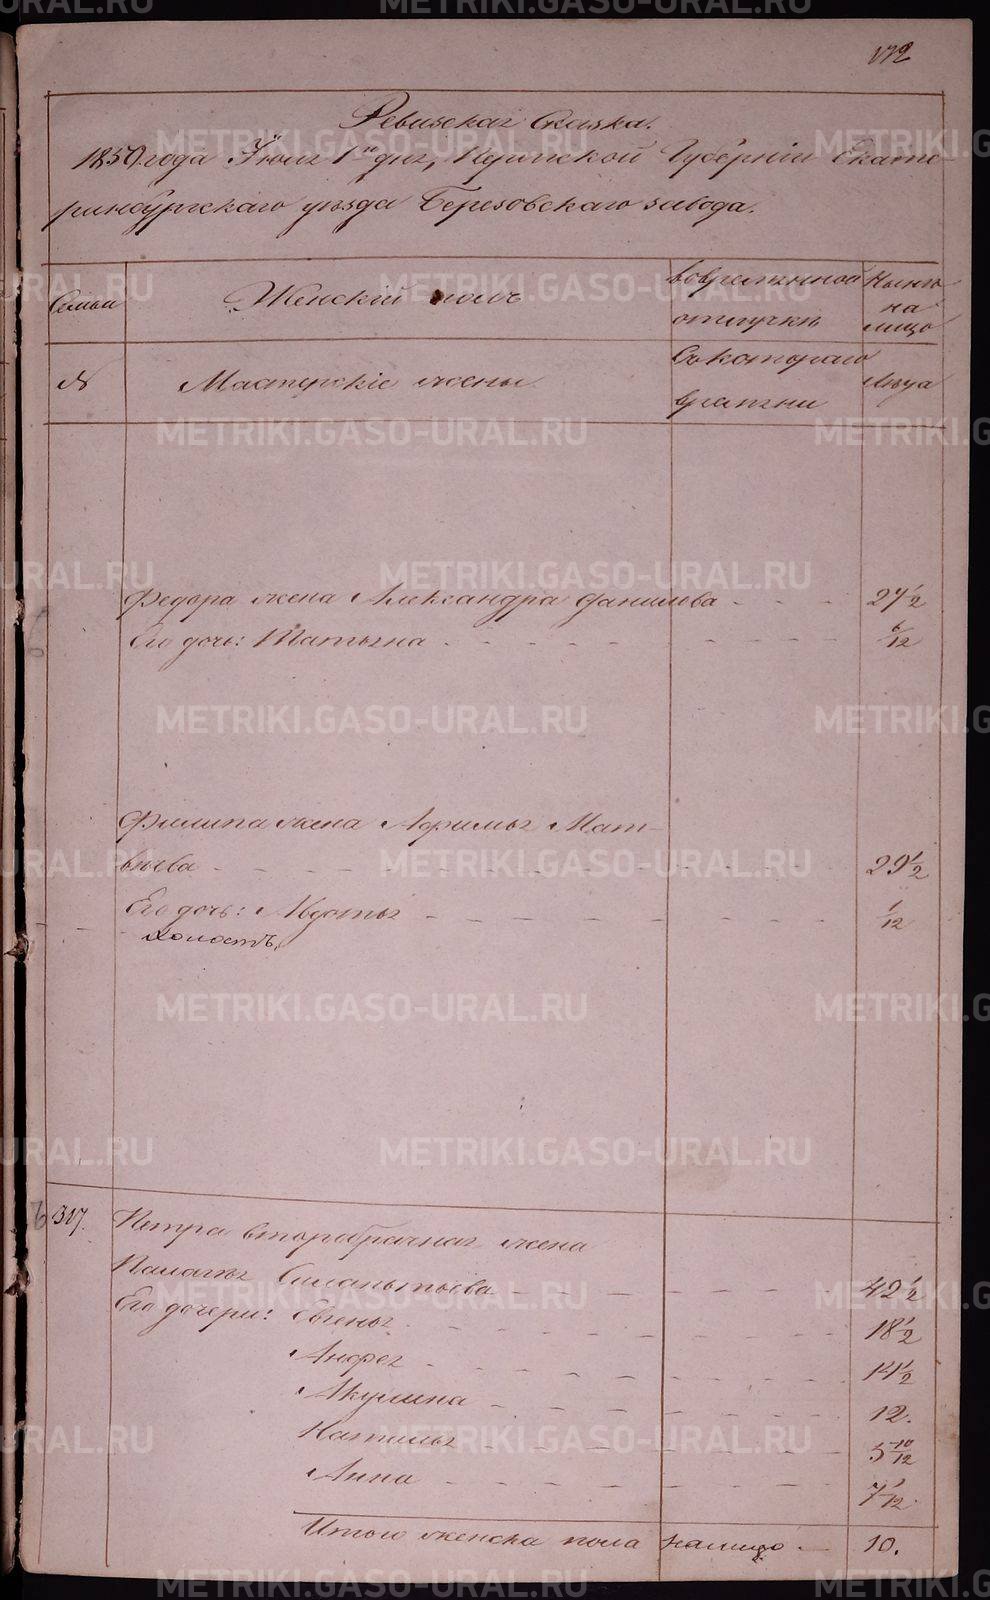 172
Ревизская Сказка.
1850 года Июля 1го дня, Пермской Губернiи Екате-
ринбургскаго уѣзда Березовскаго завода.
Семьи
Женскiй полъ
во временной
отлучкѣ
Нынѣ
на
лицо
№
Мастерскiе жены
Съ котораго
времени
Лѣта
Федора жена Александра Данилова
27 1/2
Его дочь: Татьяна
6/12
Филипа жена Афимья Мат-
вѣева
29 1/2
Его дочь: Авдотья
1/12
холостъ
317.
Петра второбрачная жена
Палагѣя Силантьева
42 1/2
Его дочери: Евгенья
18 1/2
Анфея
14 1/2
Акулина
12.
Наталья
5 10/12
Анна
7/12.
Итого женска пола налицо
10.
METRIKI.GASO-URAL.RU